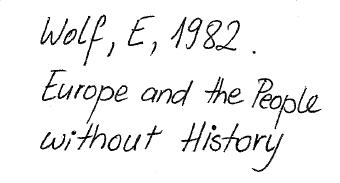 Wolf, E, 1982.
Europe and the People
without History